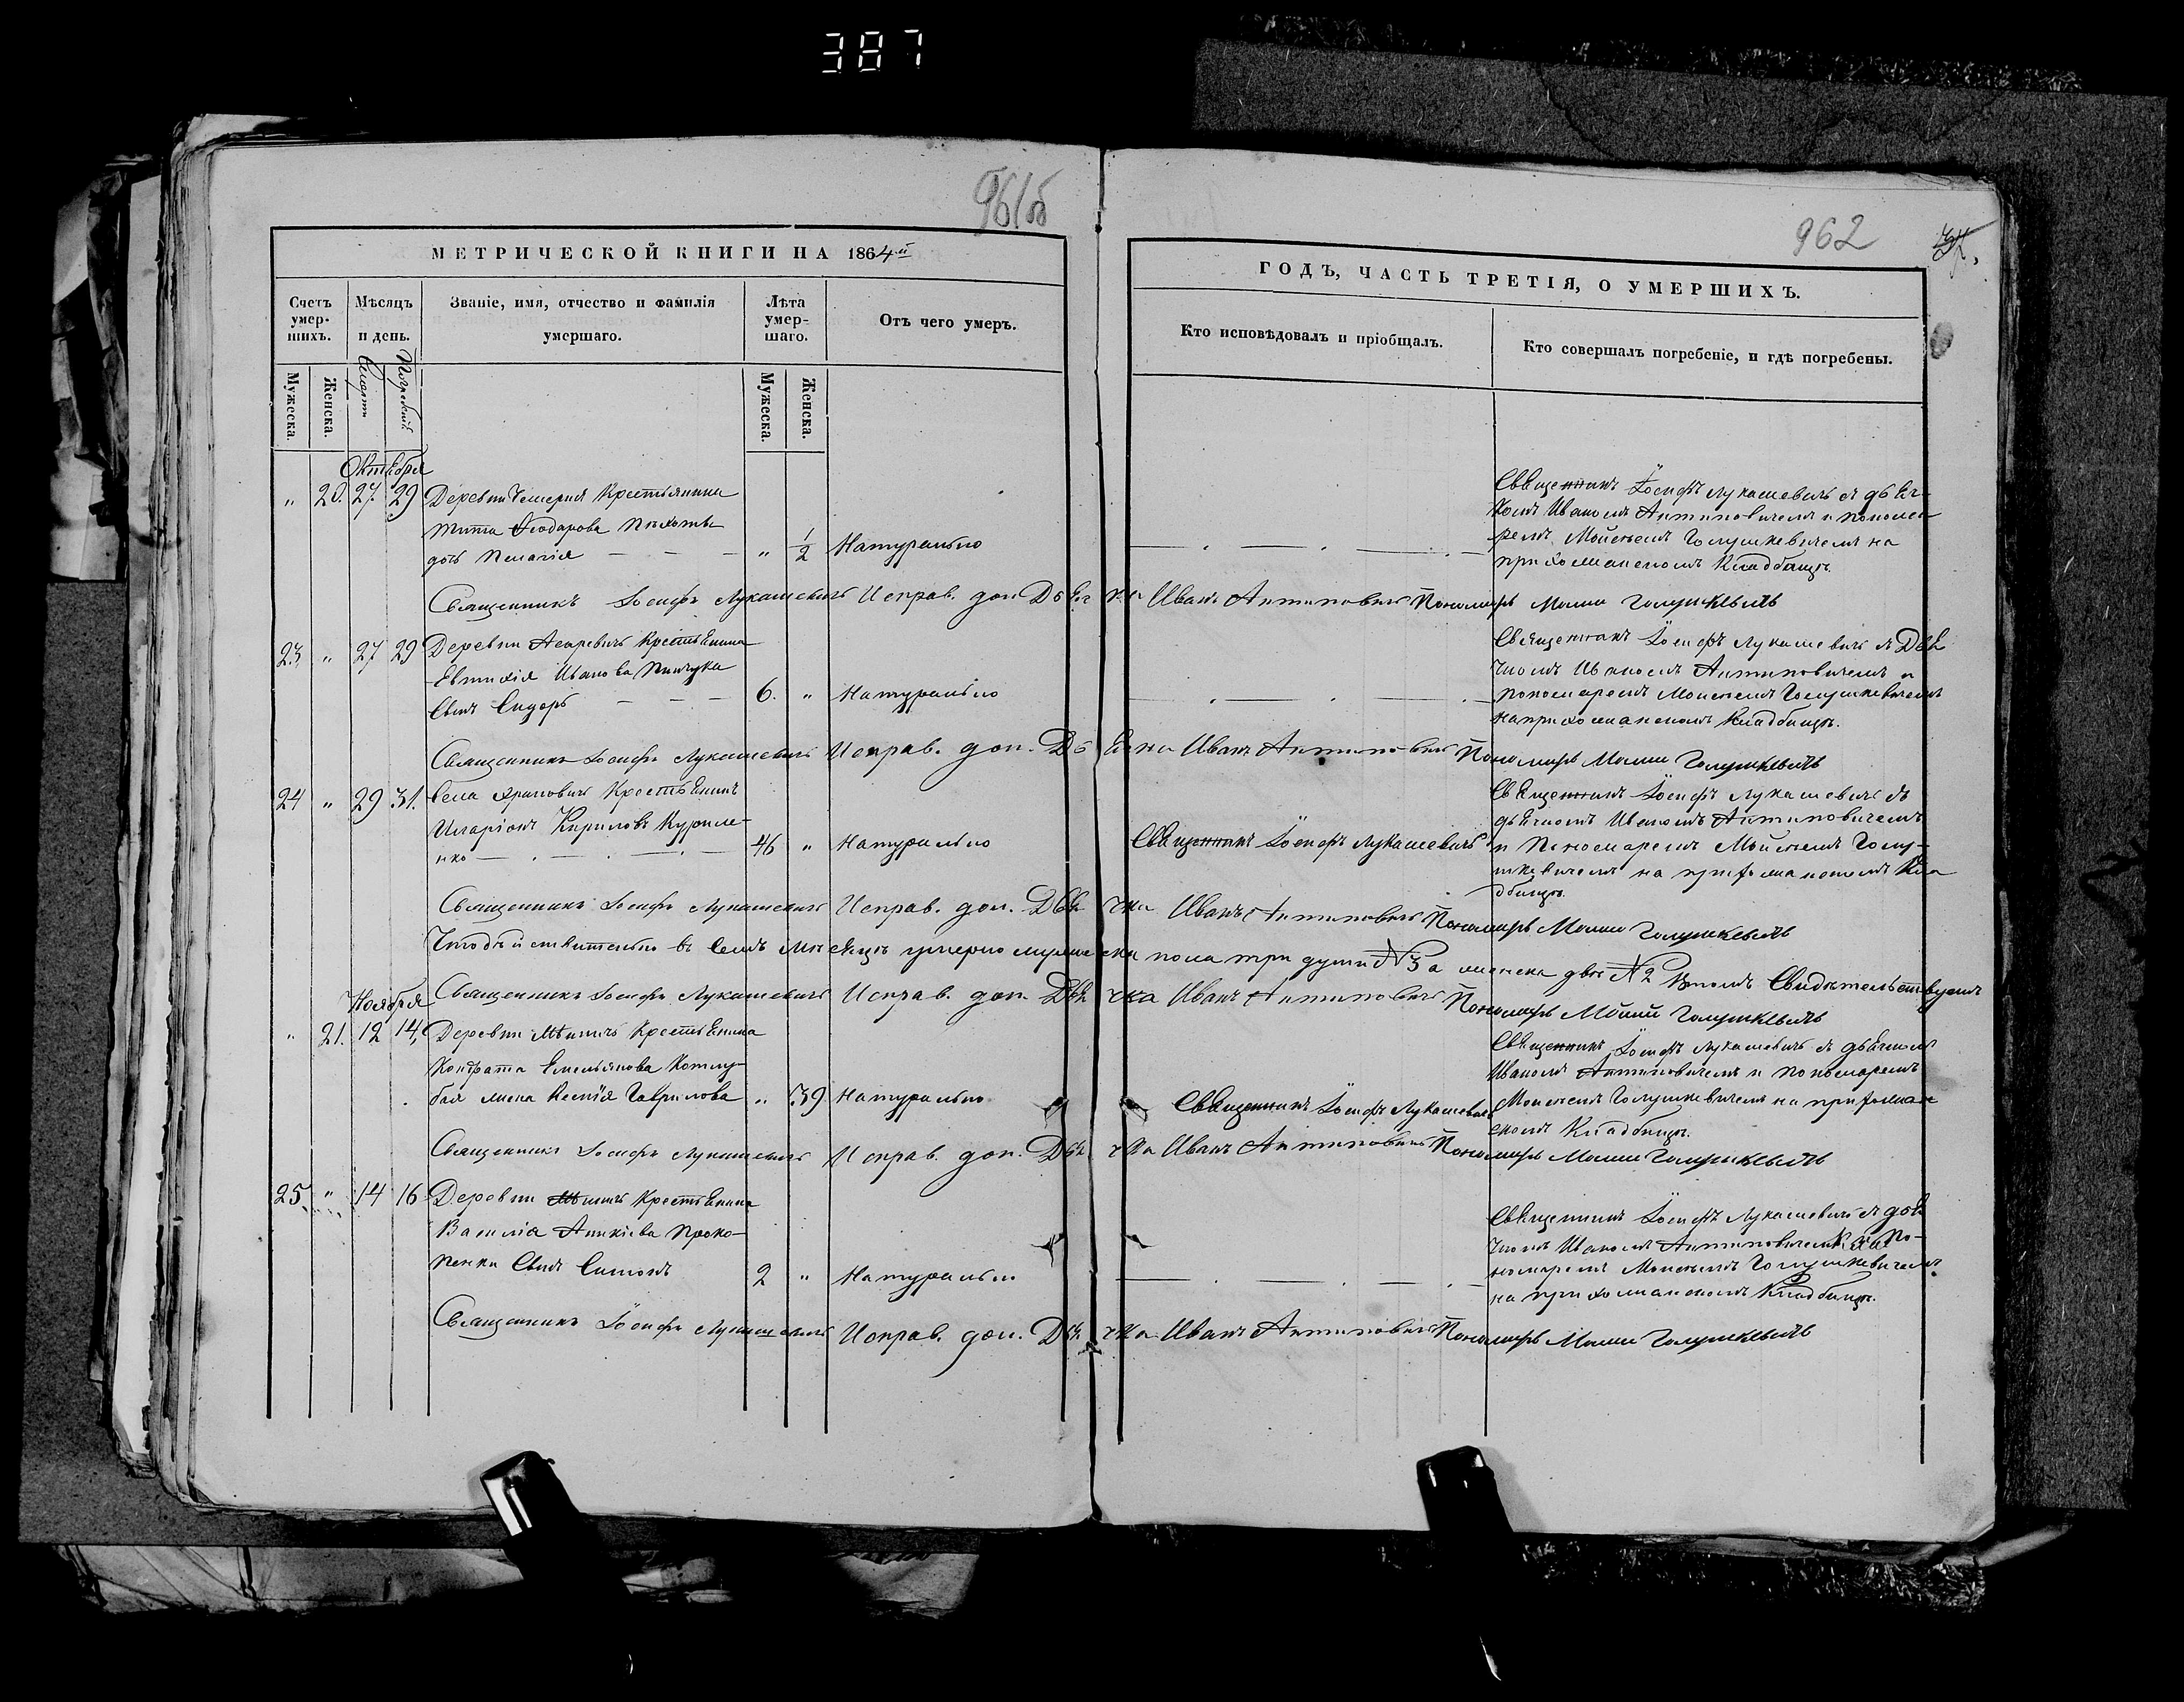 387
961об
962
МЕТРИЧЕСКОЙ КНИГИ НА 1864й
ГОДЪ, ЧАСТЬ ТРЕТІЯ, О УМЕРШИХЪ.
Счетъ умер-шихъ.
Мѣсяцъ и день.
Званіе, имя, отчество и фамилія умершаго.
Лѣта умер-шаго.
Отъ чего умеръ.
Кто исповѣдовалъ и пріобщалъ.
Кто совершалъ погребеніе, и гдѣ погребены.
Мужеска.
Женска.
Мужеска.
Женска.
Октября
" 20. 27. 29 Деревни Крестьянина
Тита Ѳіодорова
дочь Пелагія " 1/2 Натурально
Священникъ Іосифъ Лукашевичъ съ дьяч-
комъ Иваномъ Антиповичемъ и понома-
ремъ Моисеемъ Голушкевичемъ на
прихожанскомъ Кладбищѣ.
Священникъ Іосифъ Лукашевичъ Исправ. дол. Дьячка Иванъ Антиповичъ Пономарь Моисей Голушкевичъ
23 " 27 29 Деревни Крестьянина
Евтихія Иванова Пинчука
Сынъ Сидоръ 6. " Натурально
Священникъ Іосифъ Лукашевичъ съ Дья
чкомъ Иваномъ Антиповичемъ и
пономаремъ Моисеемъ Голушкевичемъ
на прихожанскомъ Кладбищѣ.
Священникъ Іосифъ Лукашевичъ Исправ. дол. Дьячка Иванъ Антиповичъ Пономарь Моисей Голушкевичъ
24 " 29 31. Села Крестьянинъ
Иларіонъ Кириловъ Куриле-
нко 46 " Натурально
Священникъ Іосифъ Лукашевичъ
Священникъ Іосифъ Лукашевичъ съ
дьячкомъ Иваномъ Антиповичемъ
и Пономаремъ Моисеемъ Голу-
шкевичемъ на прихожанскомъ Кла
дбищѣ.
Священникъ Іосифъ Лукашевичъ Исправ. дол. Дьячка Иванъ Антиповичъ Пономарь Моисей Голушкевичъ
Что дѣйствительно въ семъ мѣсяцѣ умерло мужеска пола три души №3 а женска двѣ №2 въ томъ Свидѣтельствуемъ
Священникъ Іосифъ Лукашевичъ Исправ. дол. Дьячка Иванъ Антиповичъ Пономарь Моисей Голушкевичъ
Ноября
" 21. 12 14, Деревни Крестьянина
Кондрата Емельянова Котлу-
бая жена Ксенія Гаврилова " 39 Натурально
Священникъ Іосифъ Лукашевичъ
Священникъ Іосифъ Лукашевичъ съ дьячкомъ
Иваномъ Антиповичемъ и пономаремъ
Моисеемъ Голушкевичемъ на прихожан
скомъ Кладбищѣ.
Священникъ Іосифъ Лукашевичъ Исправ. дол. Дьячка Иванъ Антиповичъ Пономарь Моисей Голушкевичъ
25 " 14 16 Деревни Крестьянина
Василія Аникіева Проко-
пенки Сынъ Симонъ 2 " Натурально
Священникъ Іосифъ Лукашевичъ съ дья
чкомъ Иваномъ Антиповичемъ и По-
номаремъ Моисеемъ Голушкевичемъ
на прихожанскомъ Кладбищѣ.
Священникъ Іосифъ Лукашевичъ Исправ. дол. Дьячка Иванъ Антиповичъ Пономарь Моисей Голушкевичъ